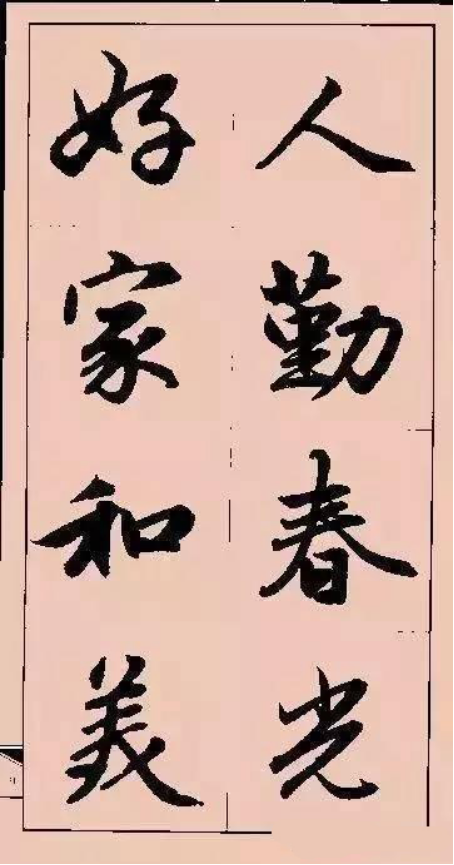 人勤春光
好家和美